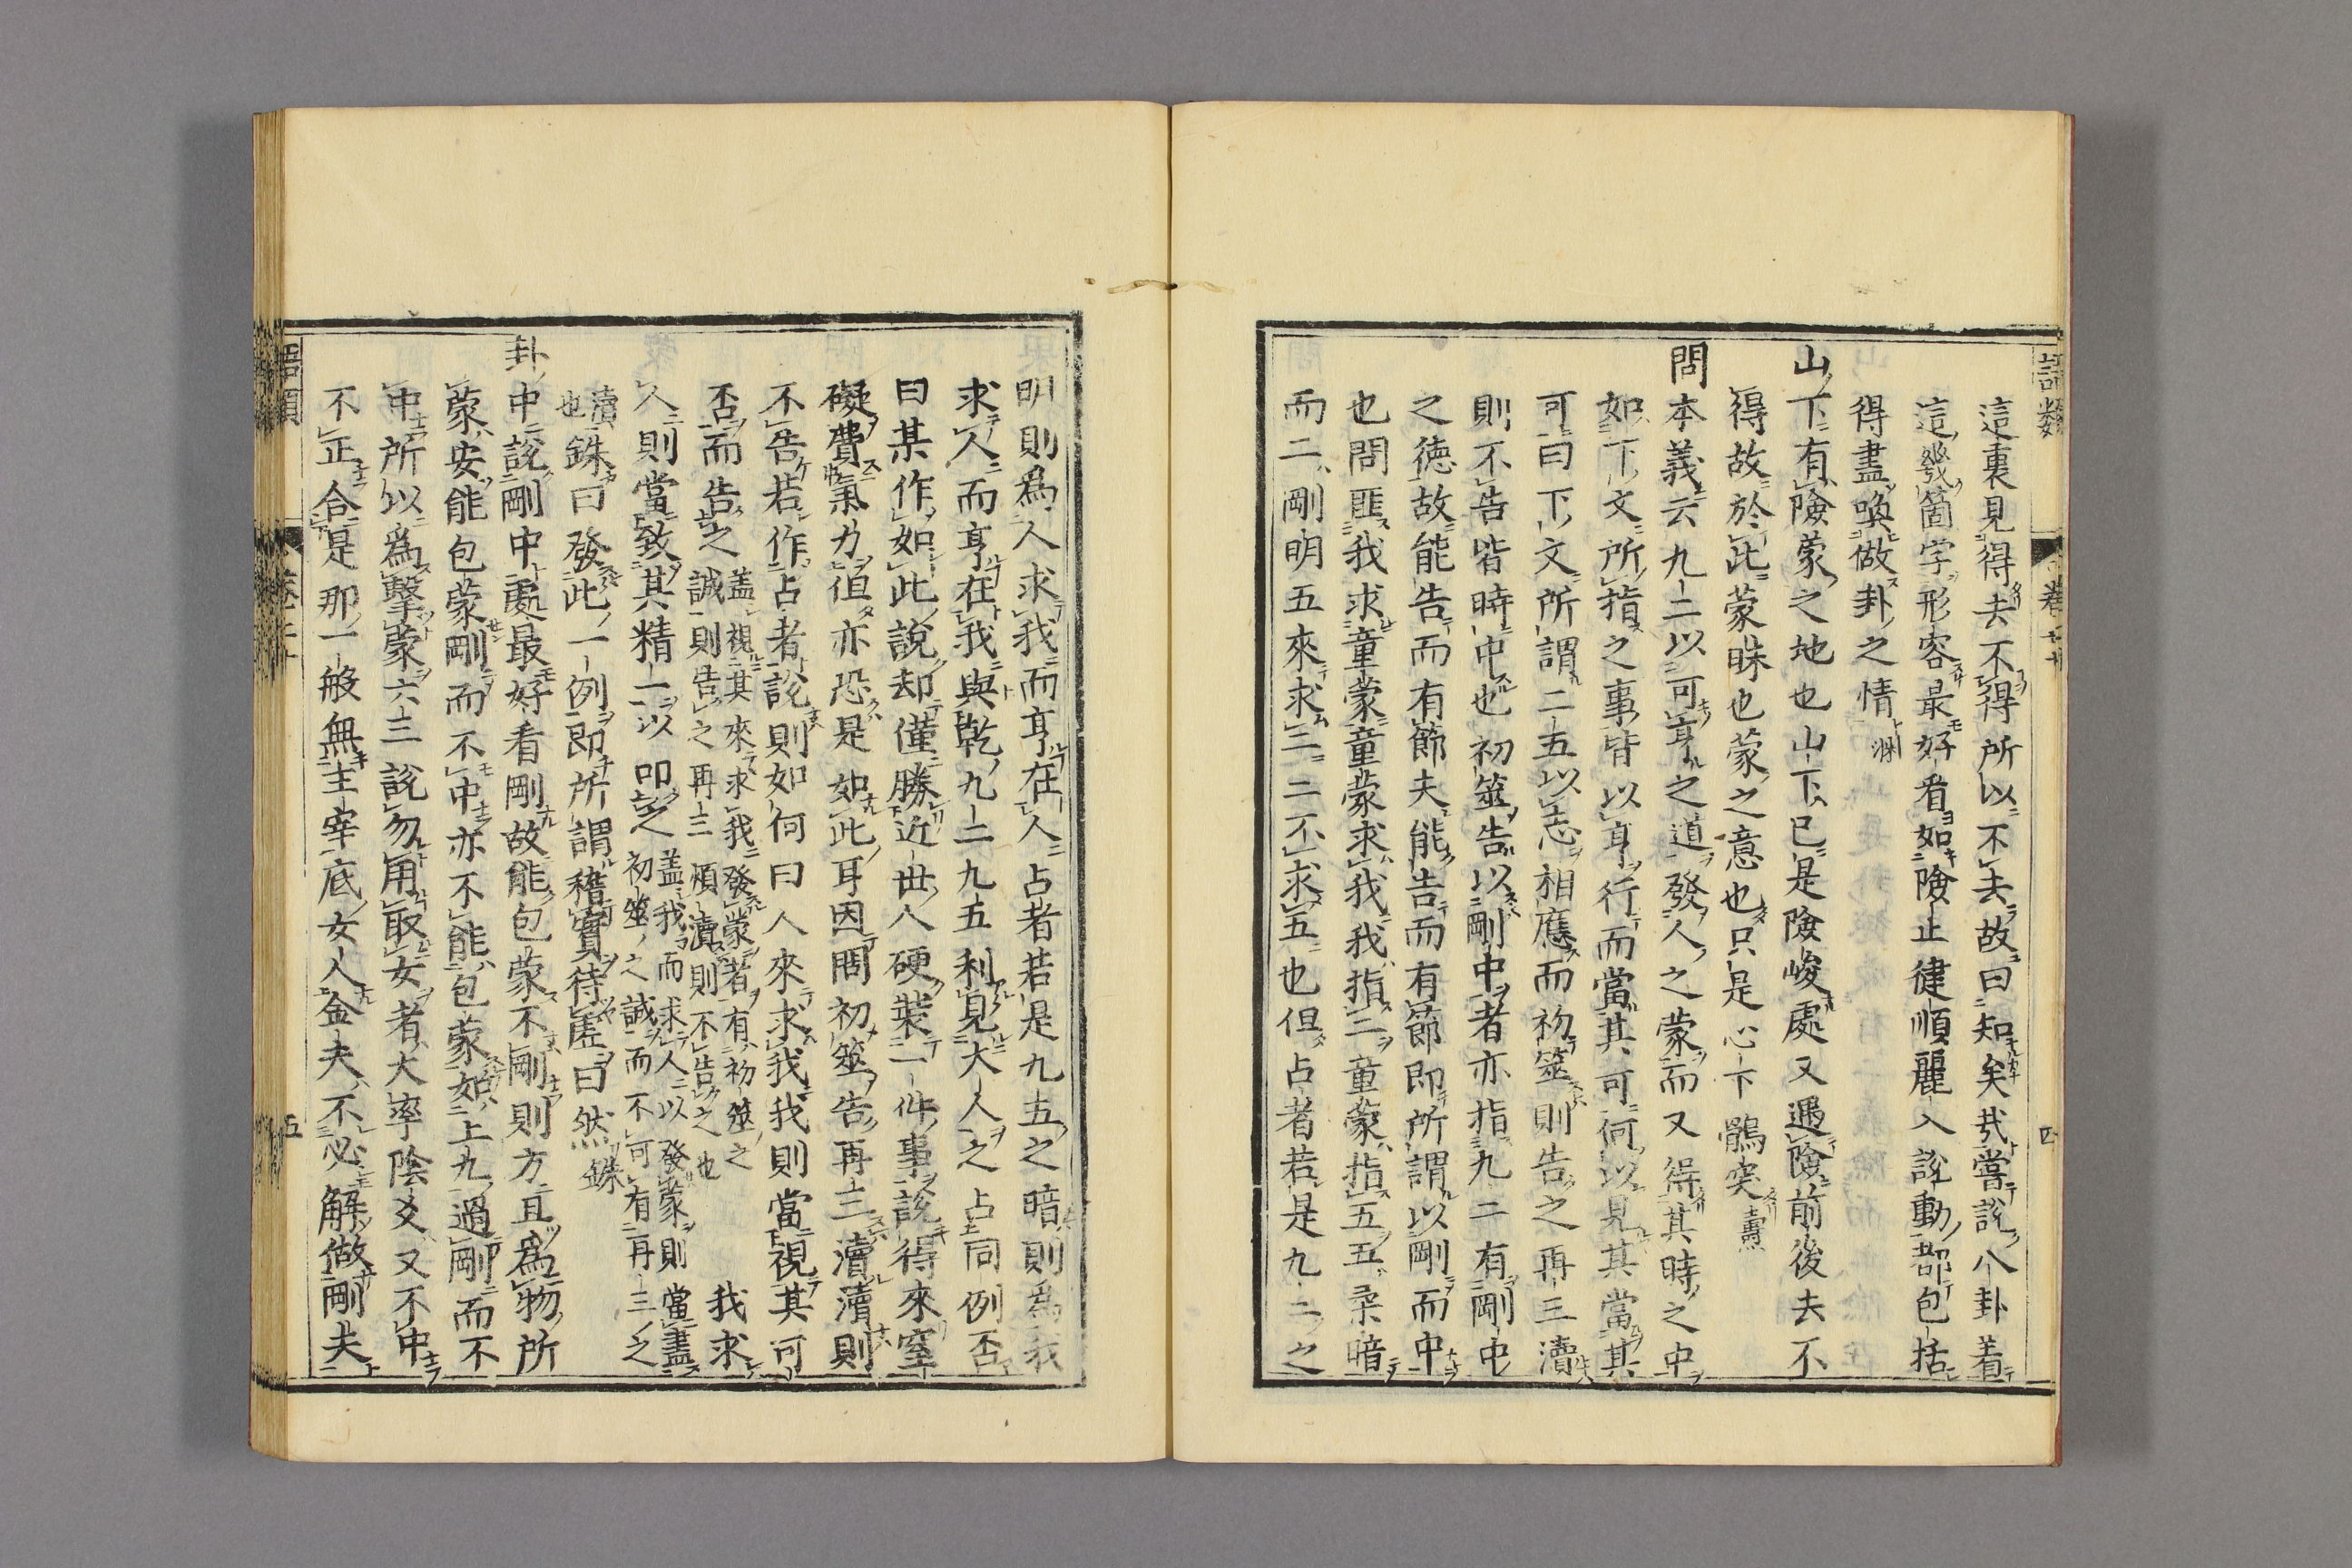 這裏見得去不得所以不去故曰知矣哉嘗說八卦着
這幾箇字形容最好看如險止健順麗入說動都包括
得盡喚做卦之情淵
山下有險蒙之地也山下已是險峻處又遇險前後去不
得故於此蒙昧也蒙之意也只是心下鶻突燾
問本義云九二以可亨之道發人之蒙而又得其時之中
如下文所指之事皆以亨行而當其可何以見其當其
可曰下文所謂二五以志相應而初筮則告之再三瀆
則不告皆時中也初筮告以剛中者亦指九二有剛中
之德故能告而有節夫能告而有節即所謂以剛而中
也問匪我求童蒙童蒙求我我指二童蒙指五五柔暗
而二剛明五來求二二不求五也但占者若是九二之
明則為人求我而亨在人占者若是九五之暗則為我
求人而亨在我與乾九二九五利見大人之占同例否
曰某作如此說却僅勝近世人硬裝一件事說得來窒
礙費氣力但亦恐是如此耳因問初筮告再三瀆瀆則
不告若作占者說則如何曰人來求我我則當視其可
否而告之蓋視其來求我發蒙者有初筮之誠則告之再三煩瀆則不告之也我求
人則當致其精一以叩之蓋我而求人以發蒙則當盡初筮之誠而不可有再三之
瀆也銖曰發此一例即所謂稽實待虛曰然銖
卦中說剛中處最好看剛故能包蒙不剛則方且為物所
蒙安能包蒙剛而不中亦不能包蒙如上九過剛而不
中所以為擊蒙六三說勿用取女者大率陰爻又不中
不正合是那一般無主宰底女人金夫不必解做剛夫
語類
卷七十
四
五